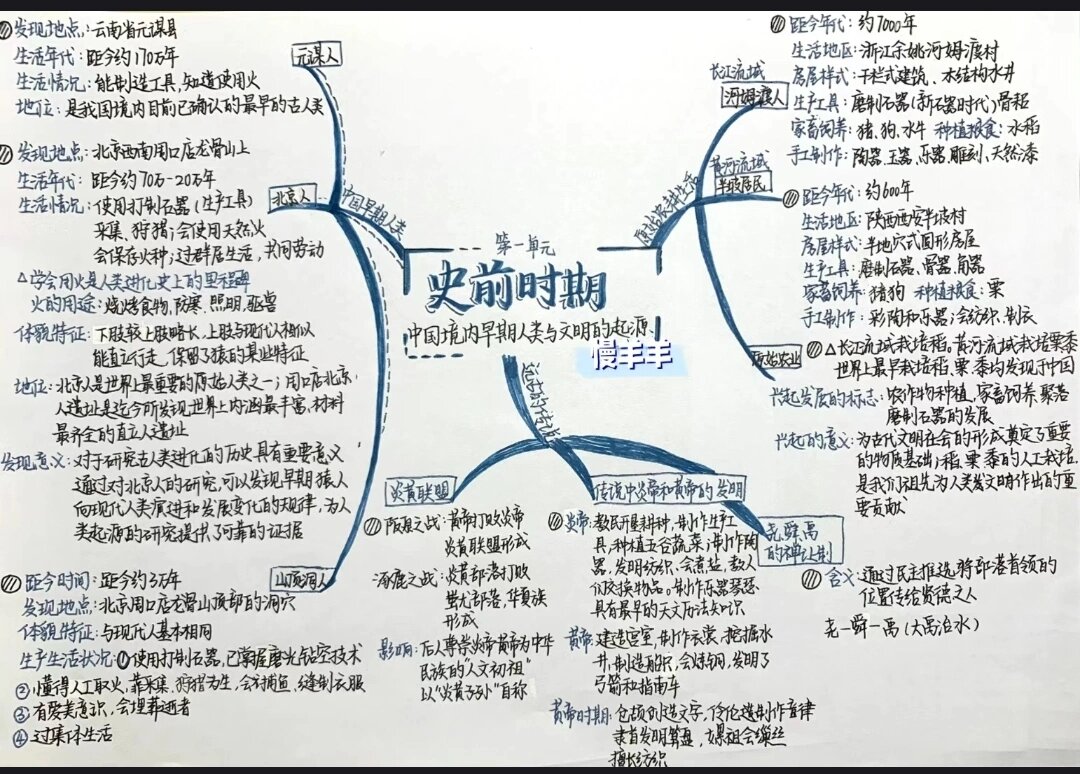 第一单元
史前时期
中国境内早期人类与文明的起源
慢羊羊
中国早期人类
元谋人
发现地点:云南省元谋县
生活年代:距今约170万年
生活情况:能制造工具,知道使用火
地位:是我国境内目前已确认的最早的古人类
北京人
发现地点:北京西南周口店龙骨山上
生活年代:距今约70万-20万年
生活情况:使用打制石器(生产工具)
采集、狩猎;会使用天然火
会保存火种;过群居生活,共同劳动
△学会用火是人类进化史上的里程碑
火的用途:烧烤食物,防寒、照明、驱兽
体貌特征:下肢较上肢略长,上肢与现代人相似
能直立行走,保留了猿的某些特征
地位:北京人是世界上最重要的原始人类之一;周口店北京
人遗址是迄今所发现世界上内涵最丰富,材料
最齐全的直立人遗址
发现意义:对于研究古人类进化的历史具有重要意义
通过对北京人的研究,可以发现早期猿人
向现代人类演进和发展变化的规律,为人
类起源的研究提供了可靠的证据
山顶洞人
距今时间:距今约3万年
发现地点:北京周口店龙骨山顶部的洞穴
体貌特征:与现代人基本相同
生产生活状况:①使用打制石器,已掌握磨光钻空技术
②懂得人工取火,靠采集、狩猎为生,会捕鱼,缝制衣服
③有爱美意识,会埋葬逝者
④过集体生活
原始农耕生活
长江流域
河姆渡人
距今年代:约7000年
生活地区:浙江余姚河姆渡村
房屋样式:干栏式建筑、木结构水井
生产工具:磨制石器(新石器时代)骨耜
家畜饲养:猪、狗、水牛 种植粮食:水稻
手工制作:陶器、玉器、乐器、雕刻、天然漆
黄河流域
半坡居民
距今年代:约600年
生活地区:陕西西安半坡村
房屋样式:半地穴式圆形房屋
生产工具:磨制石器、骨器、角器
家畜饲养:猪狗 种植粮食:粟
手工制作:彩陶和乐器;会纺织、制衣
原始农业
△长江流域栽培稻。黄河流域栽培粟黍
世界上最早栽培稻、粟、黍均发现于中国
兴起发展的标志:农作物种植,家畜饲养、聚落
磨制石器的发展
兴起的意义:为古代文明社会的形成奠定了重要
的物质基础;稻、粟、黍的人工栽培,
是我们祖先为人类发文明作出的重
要贡献
远古的传说
炎黄联盟
阪泉之战:黄帝打败炎帝
炎黄联盟形成
涿鹿之战:炎黄部落打败
蚩尤部落,华夏族
形成
影响:后人尊崇炎帝黄帝为中华
民族的"人文初祖"
以"炎黄子孙"自称
传说中炎帝和黄帝的发明
炎帝:教民开垦耕种,制作生产工
具,种植五谷蔬菜;制作陶
器,发明纺织,会煮盐,教人
们交换物品。制作乐器琴瑟
具有最早的天文历法知识
黄帝:建造宫室,制作衣裳、挖掘水
井,制造船只,会炼铜,发明了
弓箭和指南车
黄帝时期:仓颉创造文字,伶伦造制作音律
隶首发明算盘,嫘祖会缫丝
擅长纺织
尧舜禹
的禅让制
含义:通过民主推选,将部落首领的
位置传给贤德之人
尧-舜-禹(大禹治水)